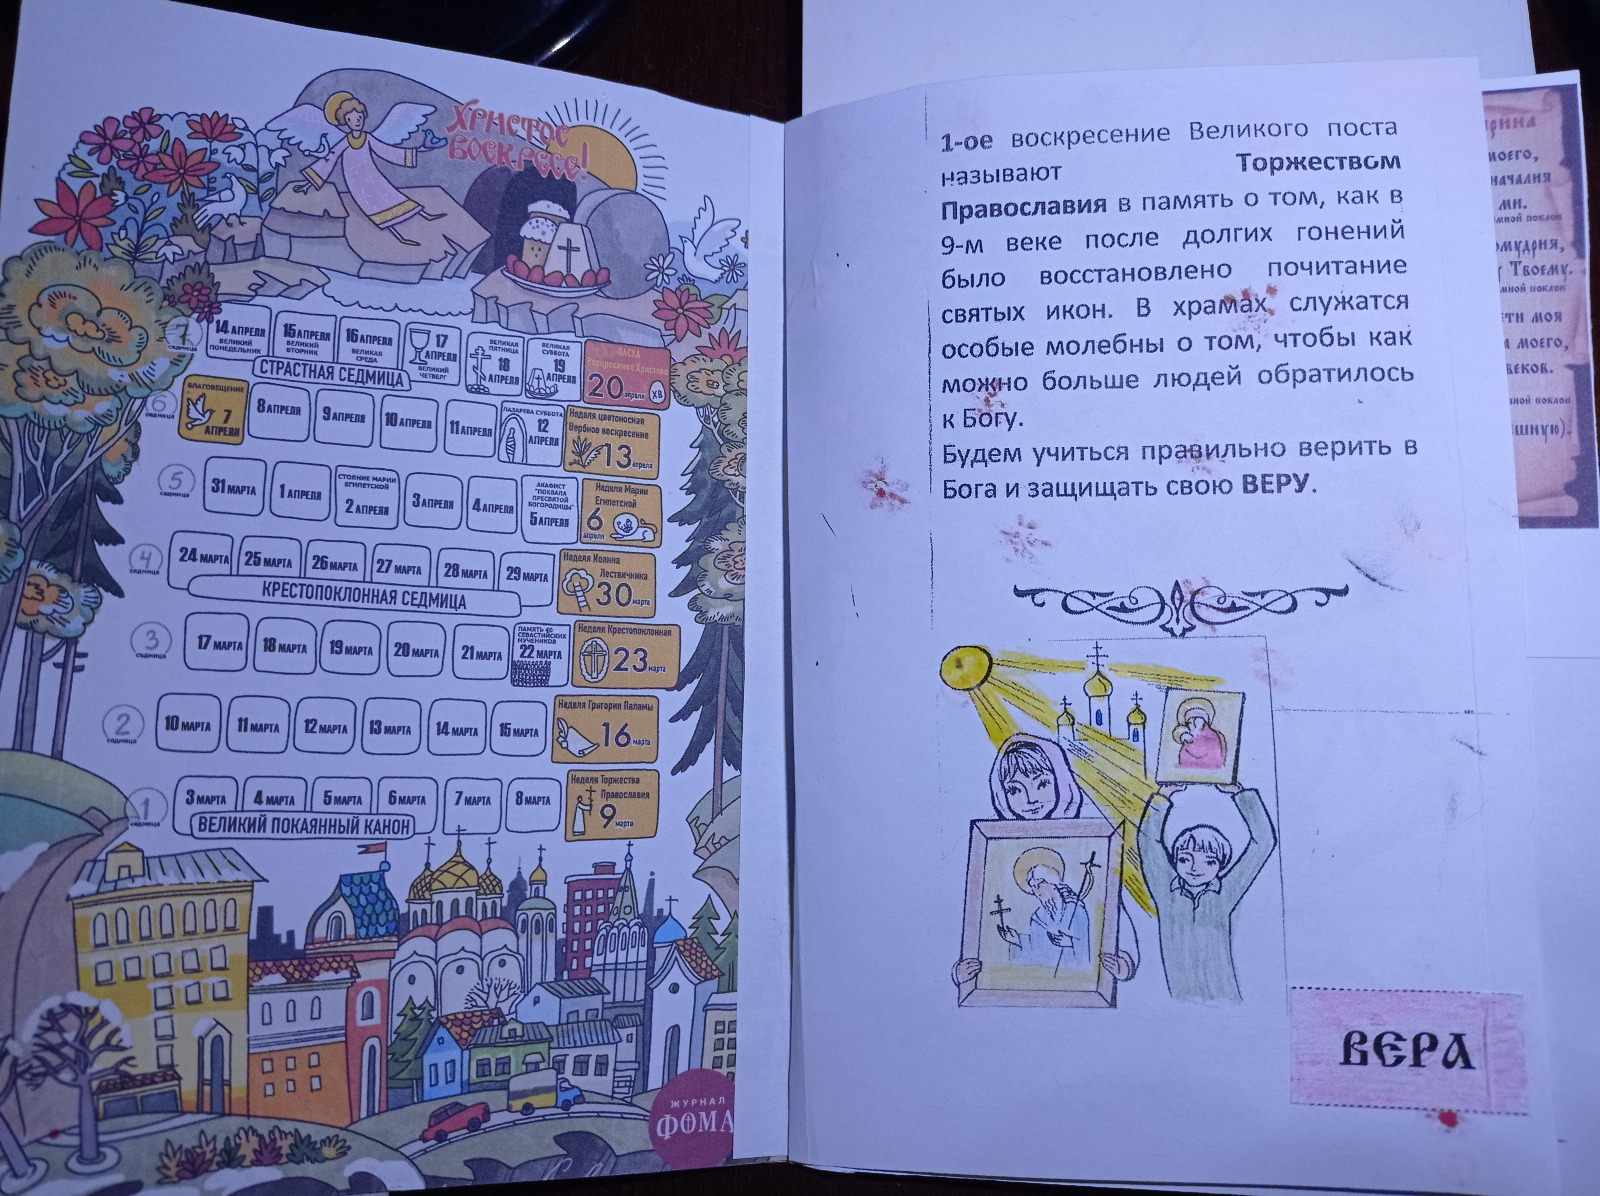 ХРИСТОС
ВОСКРЕСЕ!
7
седмица
14 АПРЕЛЯ
ВЕЛИКИЙ
ПОНЕДЕЛЬНИК
15 АПРЕЛЯ
ВЕЛИКИЙ
ВТОРНИК
16 АПРЕЛЯ
ВЕЛИКАЯ
СРЕДА
17
АПРЕЛЯ
ВЕЛИКИЙ
ЧЕТВЕРГ
ВЕЛИКАЯ
ПЯТНИЦА
18
АПРЕЛЯ
ВЕЛИКАЯ
СУББОТА
19
АПРЕЛЯ
ПАСХА
Воскресение Христово
20
апреля
ХВ
СТРАСТНАЯ СЕДМИЦА
6
седмица
БЛАГОВЕЩЕНИЕ
7
АПРЕЛЯ
8 АПРЕЛЯ
9 АПРЕЛЯ
10 АПРЕЛЯ
11 АПРЕЛЯ
ЛАЗАРЕВА СУББОТА
12
АПРЕЛЯ
Неделя цветоносная
Вербное воскресение
13 апреля
5
седмица
31 МАРТА
1 АПРЕЛЯ
СТОЯНИЕ МАРИИ
ЕГИПЕТСКОЙ
2 АПРЕЛЯ
3 АПРЕЛЯ
4 АПРЕЛЯ
АКАФИСТ
"ПОХВАЛА
ПРЕСВЯТОЙ
БОГОРОДИЦЫ"
5 АПРЕЛЯ
Неделя Марии
Египетской
6
апреля
4
седмица
24 МАРТА
25 МАРТА
26 МАРТА
27 МАРТА
28 МАРТА
29 МАРТА
Неделя Иоанна
Лествичника
30 марта
КРЕСТОПОКЛОННАЯ СЕДМИЦА
3
седмица
17 МАРТА
18 МАРТА
19 МАРТА
20 МАРТА
21 МАРТА
ПАМЯТЬ 40
СЕВАСТИЙСКИХ
МУЧЕНИКОВ
22 МАРТА
Неделя Крестопоклонная
23 марта
2
седмица
10 МАРТА
11 МАРТА
12 МАРТА
13 МАРТА
14 МАРТА
15 МАРТА
Неделя Григория Паламы
16
марта
1
седмица
3 МАРТА
4 МАРТА
5 МАРТА
6 МАРТА
7 МАРТА
8 МАРТА
Неделя Торжества
Православия
9 марта
ВЕЛИКИЙ ПОКАЯННЫЙ КАНОН
ЖУРНАЛ
ФОМА
1-ое воскресение Великого поста
называют Торжеством
Православия в память о том, как в
9-м веке после долгих гонений
было восстановлено почитание
святых икон. В храмах служатся
особые молебны о том, чтобы как
можно больше людей обратилось
к Богу.
Будем учиться правильно верить в
Бога и защищать свою ВЕРУ.
ВЕРА
моего,
ми.
поклон
Твоему.
поклон
моя
моего,
веков.
поклон